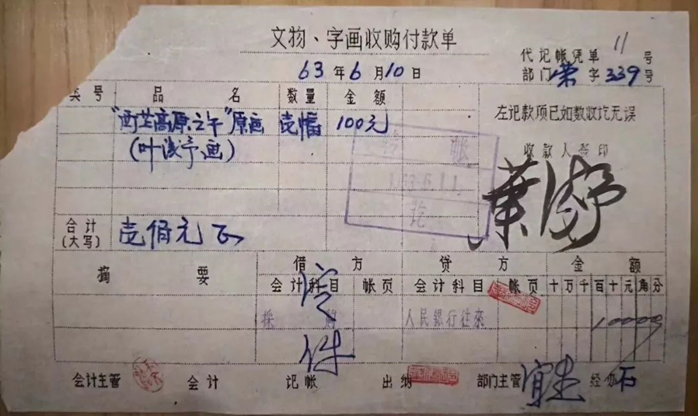 文物、字画收购付款单
代记帐凭单 11 号
63年6月10日
部门 荣 字 339 号
类号 品名 数量 金额
"西芷高原之午"原画 壱幅 100元
(叶浅予画)
左记款项已如数收讫无误
收款人签印
叶浅予
转帐
讫
合计(大写) 壱佰元正
摘要 借方 贷方 金额
会计科目 帐页 会计科目 帐页 十万千百十元角分
人民银行往来 10000
会计主管 会计 记帐 出纳 部门主管 经办 石